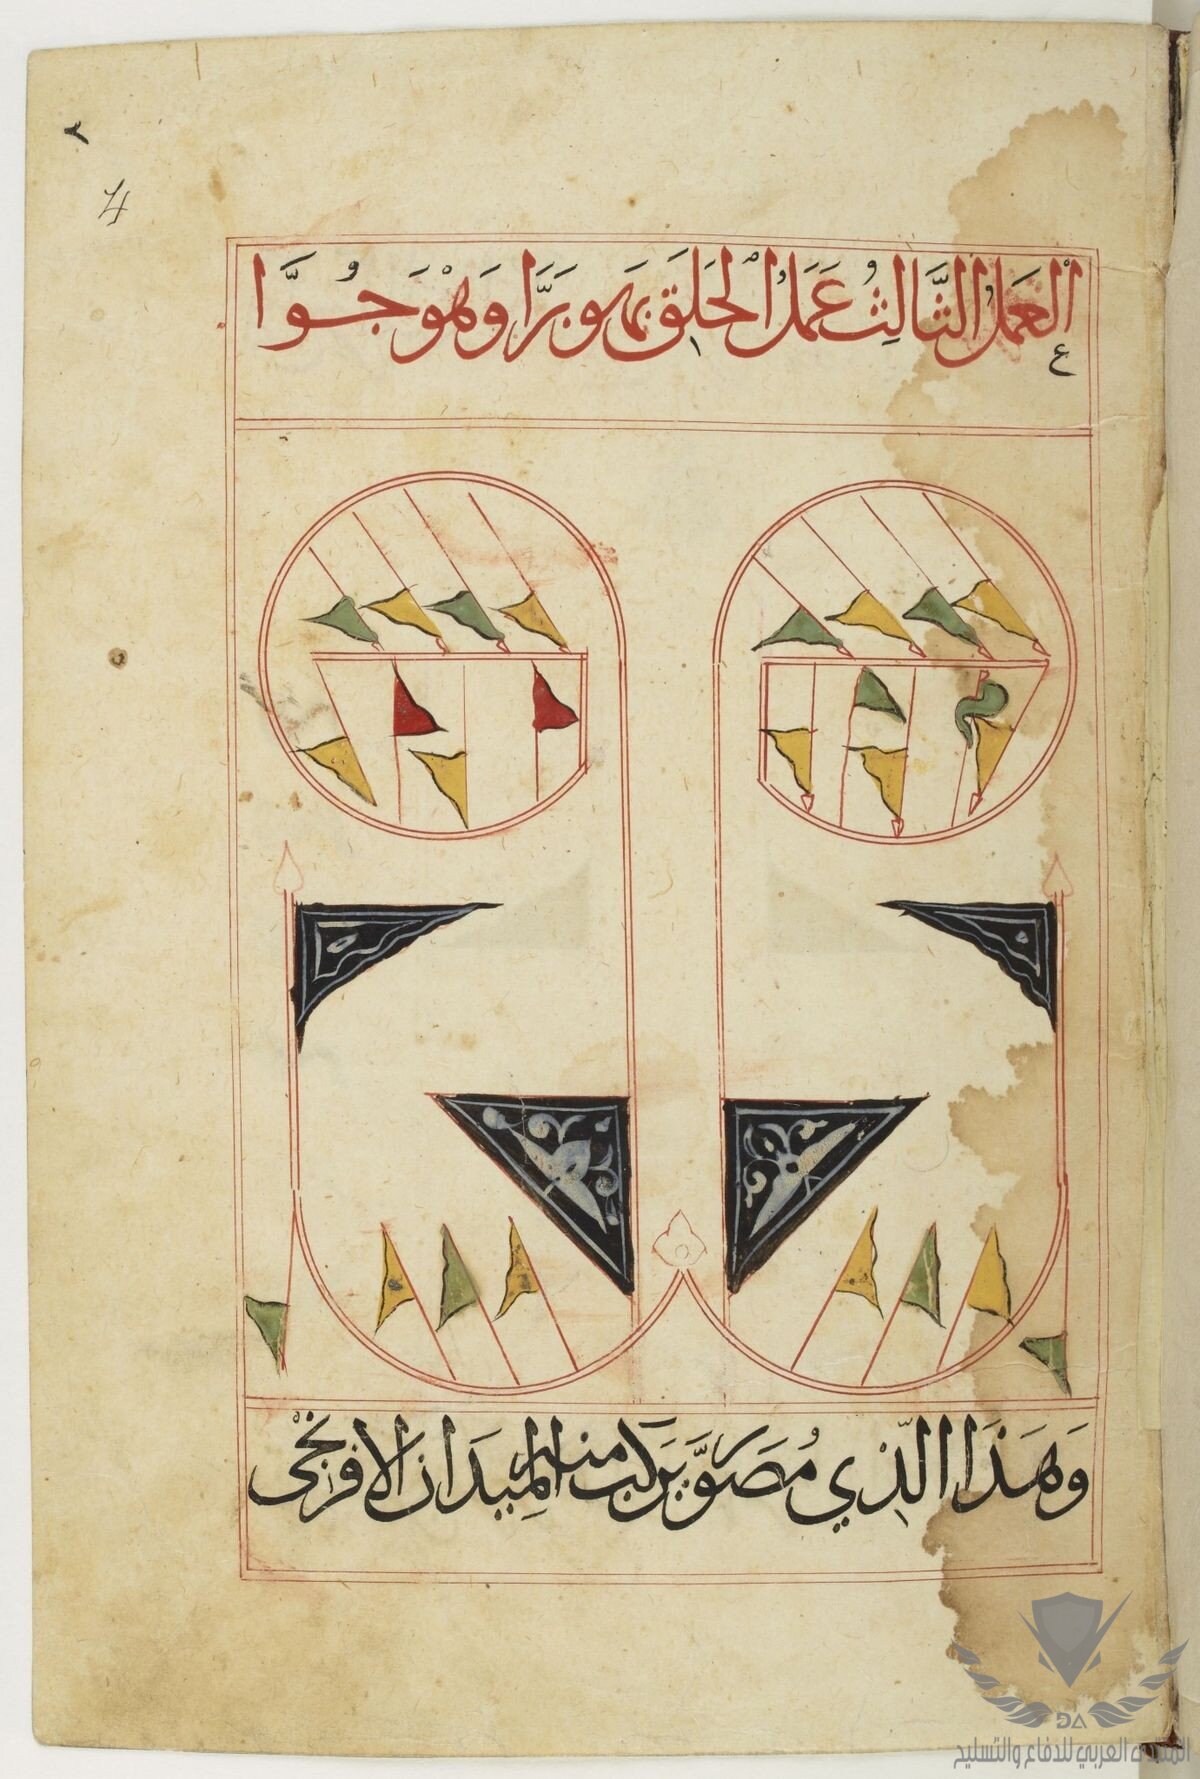 ٢
4
اْلعَمَلُ الثَّالِثُ عَمَلُ الْحَلَقِ يمَهو بَرَّا وَهْوَ جُوَّا
ع
وَهَذَا الَّذِي مُصَوَّر يَركَب منه المِيدَان الافرَنْجي
DA
المنتدى العربي للدفاع والتسليح